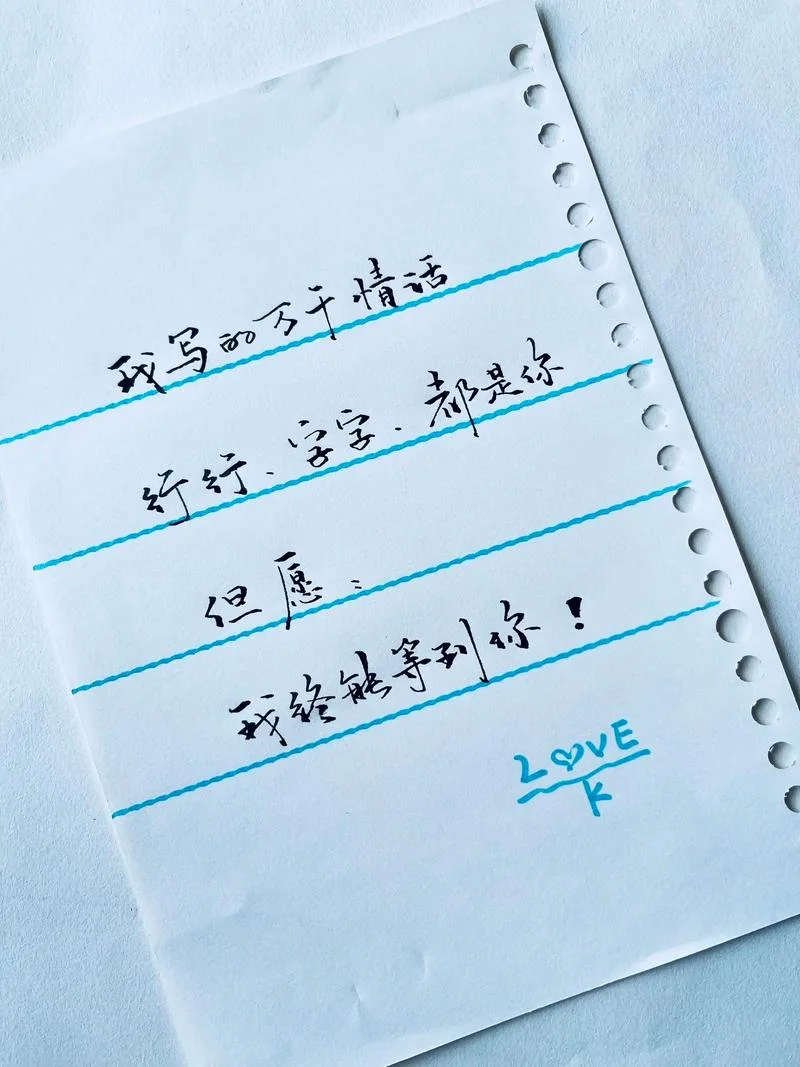 我写的万千情话
行行、字字、都是你
但愿：
我终能等到你！
LOVE
K